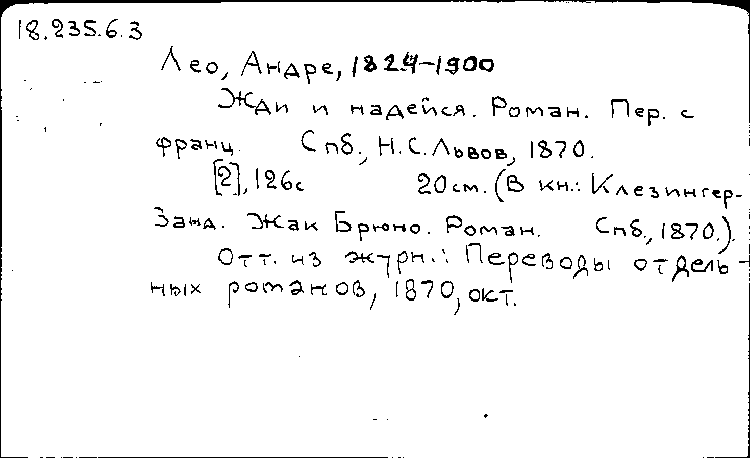 18.235.6.3
Лео, Андре, 1824-1900
Жди и надейся. Роман. Пер. с
франц. Спб., Н.С.Львов, 1870.
[2], 126с 20см. (В кн.: Клезингер-
Занд. Жак Брюно. Роман. Спб., 1870.).
Отт. из журн.: Переводы отдель-
ных романов, 1870, окт.